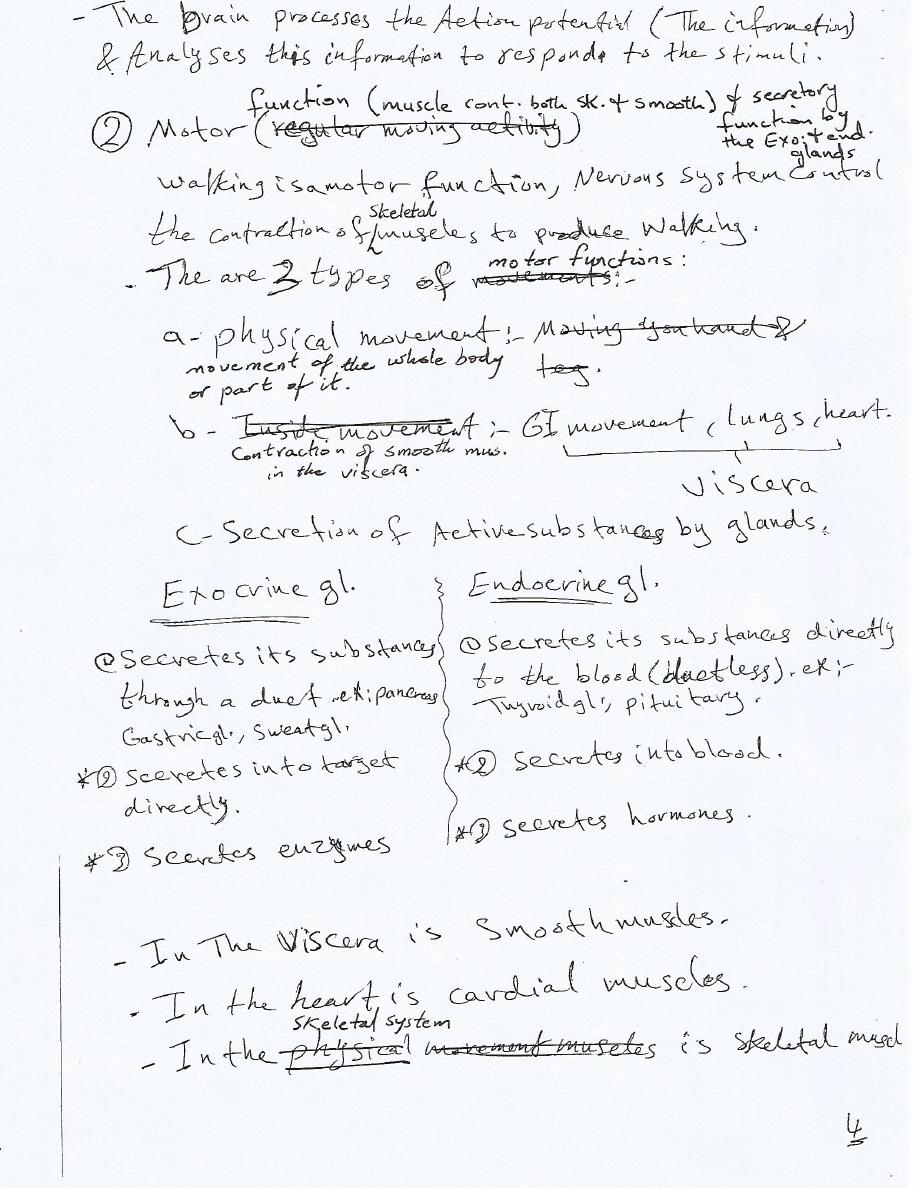 - The brain processes the Action potential (The information)
& Analyses this information to responde to the stimuli.
function (muscle cont. both sk. & smooth) & secretory
function by
the Exo. & end.
glands
② Motor (regular moving activity)
Walking is a motor function, Nervous System Control
skeletal
the contraction of muscles to produce Walking.
motor functions:
- The are 3 types of movements:-
a- physical movement:- Moving you hand &
leg.
movement of the whole body
or part of it.
b- Inside movement:- GI movement, lungs, heart.
Contraction of smooth mus.
in the viscera.
viscera
C- Secretion of Active substances by glands.
Exocrine gl.
① Secretes its substances
through a duct ex: pancreas
Gastric gl., Sweat gl.
*② secretes into target
directly.
*③ Secretes enzymes
Endocrine gl.
① Secretes its substances directly
to the blood (ductless). ex:-
Thyroid gl., pituitary.
*② Secretes into blood.
*③ secretes hormones.
- In The Viscera is Smooth muscles.
- In the heart is cardial muscles.
skeletal system
- In the physical movement muscles is skeletal muscl
4